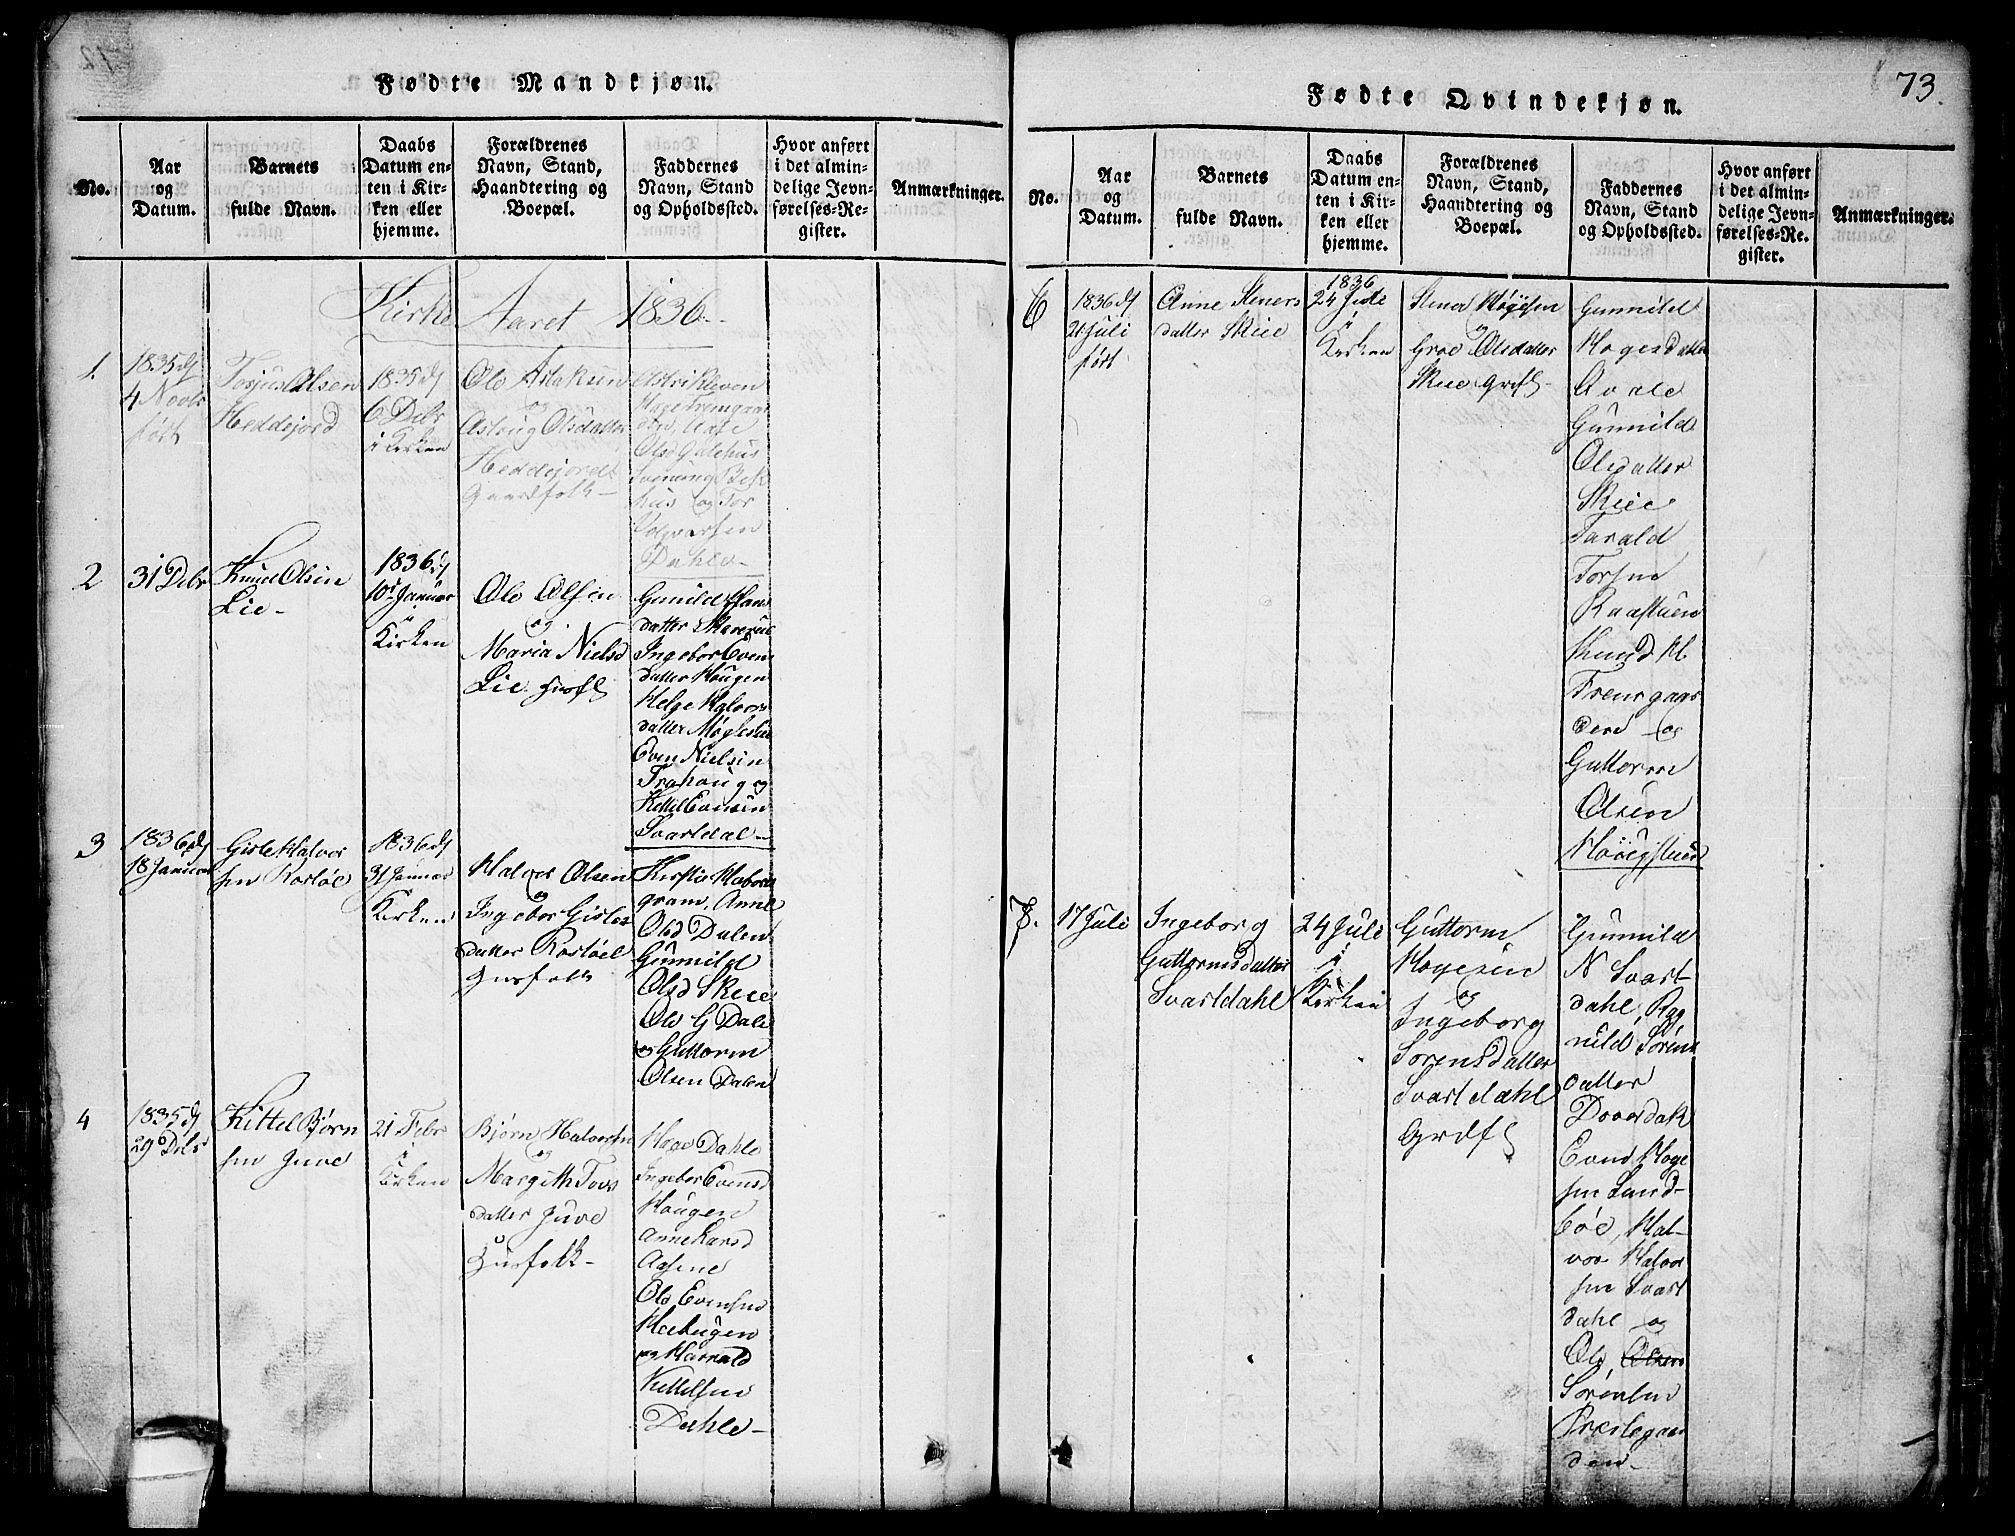 Fødte Mandkjøn.
No.
Aar
og
Datum.
Barnets
fulde Navn.
Daabs
Datum en-
ten i Kir-
ken eller
hjemme.
Forældrenes
Navn, Stand,
Haandtering og
Boepæl.
Faddernes
Navn, Stand
og Opholdssted.
Hvor anført
i det almin-
delige Jevn-
førelses-Re-
gister.
Anmærkninger.
Kirke Aaret 1836
1.
1835 d
4 Novbr
født
Torjus Olsen
Heddejord
1835 d
6 Debr
i Kirken
Ole Aslaksen
og
Aslaug Olsdatter
Heddejord
Gaardfolk
Olsd Galehus
og Tor
Dahle
2
31 Debr
Knud Olsen
Lie
1836 d
10 Januar
i
Kirken
Ole Olsen
og
Maria Nielsd
Lie
Gunild Hans
datter
Ingebor Evens
datter Haugen
Helge Halvors
datter
Even Nielsen
og
Kittel Evensen
Svartdal
3
1836 d
18 Januar
Gisle Halvor
sen Rostøl
1836 d
31 Januar
Kirken
Halvor Olsen
og
Ingebor Gisles
datter Rostøel
Husfolk
Anne
Olsd Dalen
Gunnild
Olsd Skeie
Ole G Dale
og Guttorm
Olsen Dalen
4
1835 d
29 Debr
Kittel Bjørn
sen Juve
21 Febr
i
Kirken
Bjørn Halvorsen
og
Margith Tovs
datter Juve
Husfolk
Hage Dahle
Ingebor Evensd
Haugen
Anne Larsd
Aasene
Ole Evensen
og Harald
Kittilsen
Dahle
73.
Fødte Qvindekjøn.
No.
Aar
og
Datum.
Barnets
fulde Navn.
Daabs
Datum en-
ten i Kir-
ken eller
hjemme.
Forældrenes
Navn, Stand,
Haandtering og
Boepæl.
Faddernes
Navn, Stand
og Opholdssted.
Hvor anført
i det almin-
delige Jevn-
førelses-Re-
gister.
Anmærkninger.
6
1836 d
Juli
født
Anne Steners
datter Skeie
1836
24 Jule
i
Kirken
Stener Høgesen
og
Groe Olsdatter
Skeie
Gunnild
Hogesdatter
Gunnild
Olsdatter
Skeie
Tarald
Torsen
Raastuen
Knud H
Tveitgaar
dene og
Guttorm
Olsen
7.
17 Juli
Ingeborg
Guttormsdatter
Svartdahl
24 Juli
i
Kirken
Guttorm
Hogesen
og
Ingeborg
Sorensdatter
Svartdahl
Gunnild
N Svart-
dahl, Rag
nild Sørens
datter
Evend Hoge
sen Sund-
bøe, Hal-
vor Halvor
sen Svart
dahl og
Ole
Sørensen
Præstegaar
den